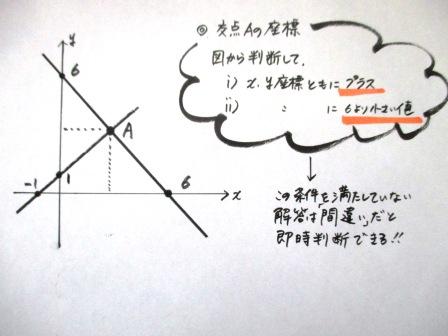 ◎ 交点Aの座標
図から判断して、
i) x、y座標ともにプラス
ii) 〃 に 6より小さい値
y
6
A
-1
1
6
x
この条件を満たしていない
解答は「間違い」だと
即時判断できる!!